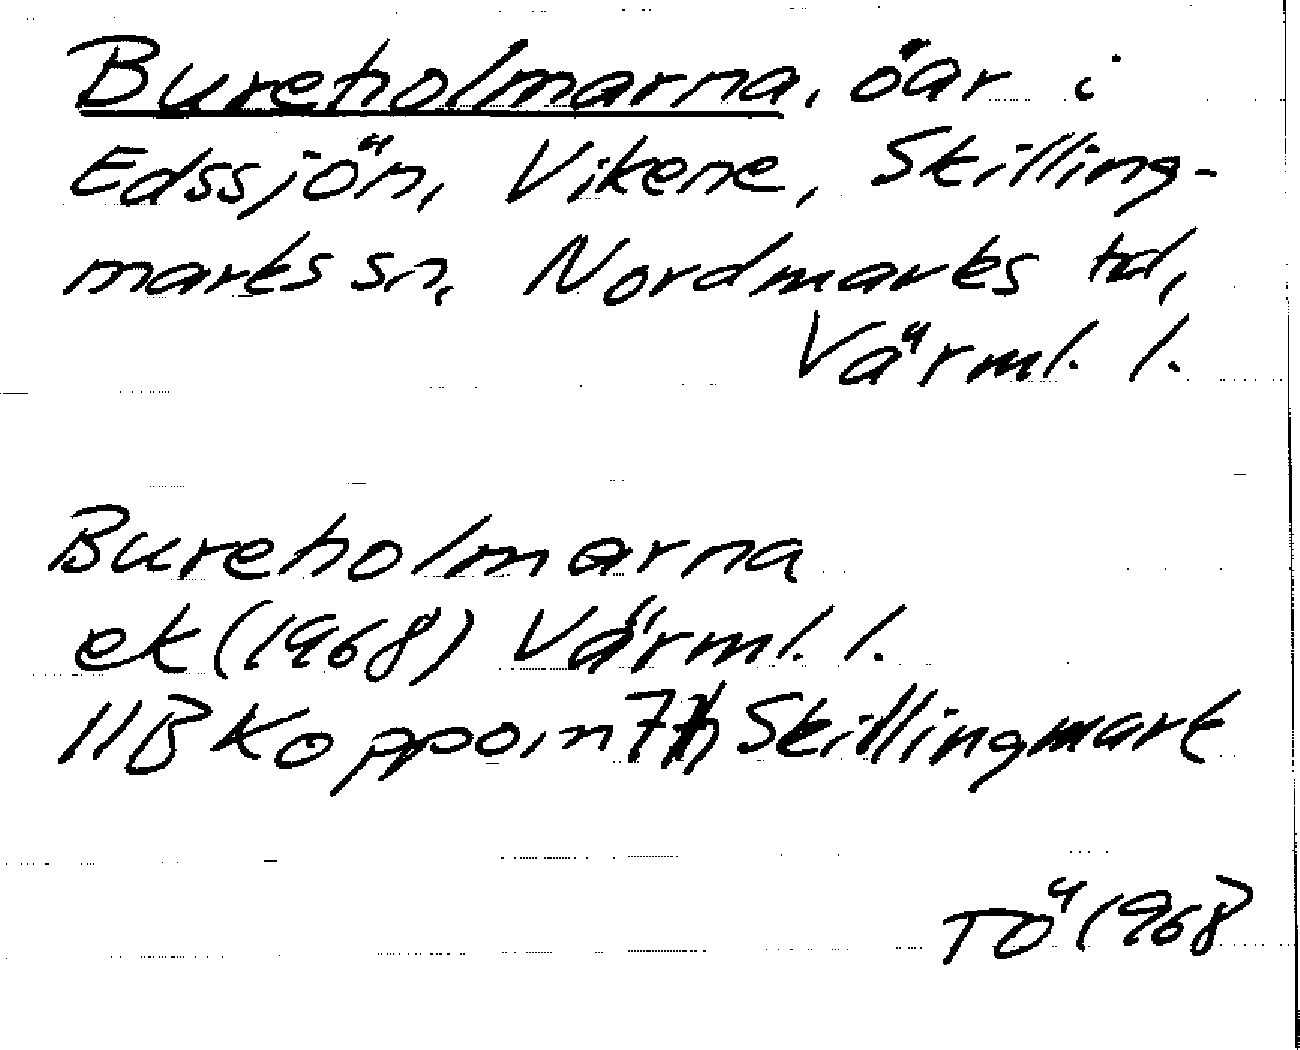 Bureholmarna, öar i
Edssjön, Vikene, Skilling-
marks sn, Nordmarks hd,
Värml. l.
Bureholmarna
ek (1968) Värml. l.
11B Koppom 7h Skillingmark
TÖ 1968